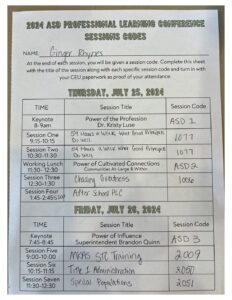 2024 ASD PROFESSIONAL LEARNING CONFERENCE
SESSIONS CODES
NAME: Ginger Rhynes
At the end of each session, you will be given a session code. Complete this sheet
with the title of the session along with each specific session code and turn in with
your CEU paperwork as proof of your attendance.
THURSDAY, JULY 25, 2024
TIME Session Title Session Code
Keynote
8-9am Power of the Profession
Dr. Kristy Luse ASD 1
Session One
9:15-10:15 59 Hours A Week: What Good Principals
Do Well 1077
Session Two
10:30-11:30 59 Hours A Week: What Good Principals
Do Well 1077
Working Lunch
11:30-12:30 Power of Cultivated Connections
Communities At-Large & Within ASD 2
Session Three
12:30-1:30 Chasing Greatness 1006
Session Four
1:45-2:45 After School PLC
FRIDAY, JULY 26, 2024
TIME Session Title Session Code
Keynote
7:45-8:45 Power of Influence
Superintendent Brandon Quinn ASD 3
Session Five
9:00-10:00 MKAS Training 2009
Session Six
10:15-11:15 Title I Administration 2051
Session Seven
11:30-12:30 Special Populations 2051